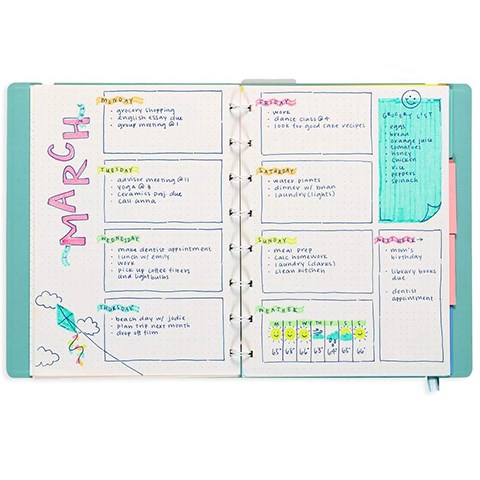 MARCH
MONDAY
• grocery shopping
• english essay due
• group meeting @1
TUESDAY
• advisor meeting @11
• yoga @8
• ceramics proj. due
• call anna
WEDNESDAY
• make dentist appointment
• lunch w/ emily
• work
• pick up coffee filters
and light bulbs
THURSDAY
• beach day w/ jodie
• plan trip next month
• drop off film
FRIDAY
• work
• dance class @4
• look for good cake recipes
SATURDAY
• water plants
• dinner w/ brian
• laundry (lights)
SUNDAY
• meal prep
• calc homework
• laundry (darks)
• clean kitchen
WEATHER
M T W TH F S S
65° 68° 66° 63° 64° 65° 66°
GROCERY LIST
• eggs
• bread
• orange juice
• tomatoes
• honey
• chicken
• rice
• peppers
• spinach
NEXT WEEK
• mom's
birthday
• library books
due
• dentist
appointment